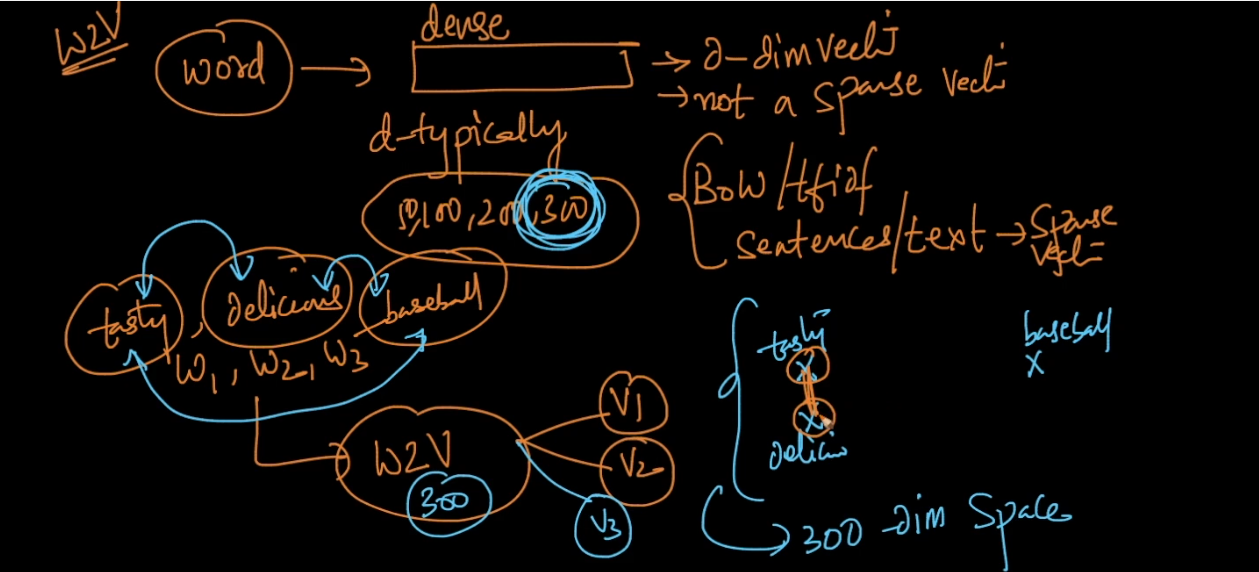 W2V
word → dense → d-dim vect
→ not a sparse vect
d-typically
50,100,200,300
BoW/tfidf
Sentences/text → Sparse
Vect
tasty, delicious baseball
w1, w2, w3
W2V
300
V1
V2
V3
tasty
x
x
delicio
baseball
x
→ 300-dim Space